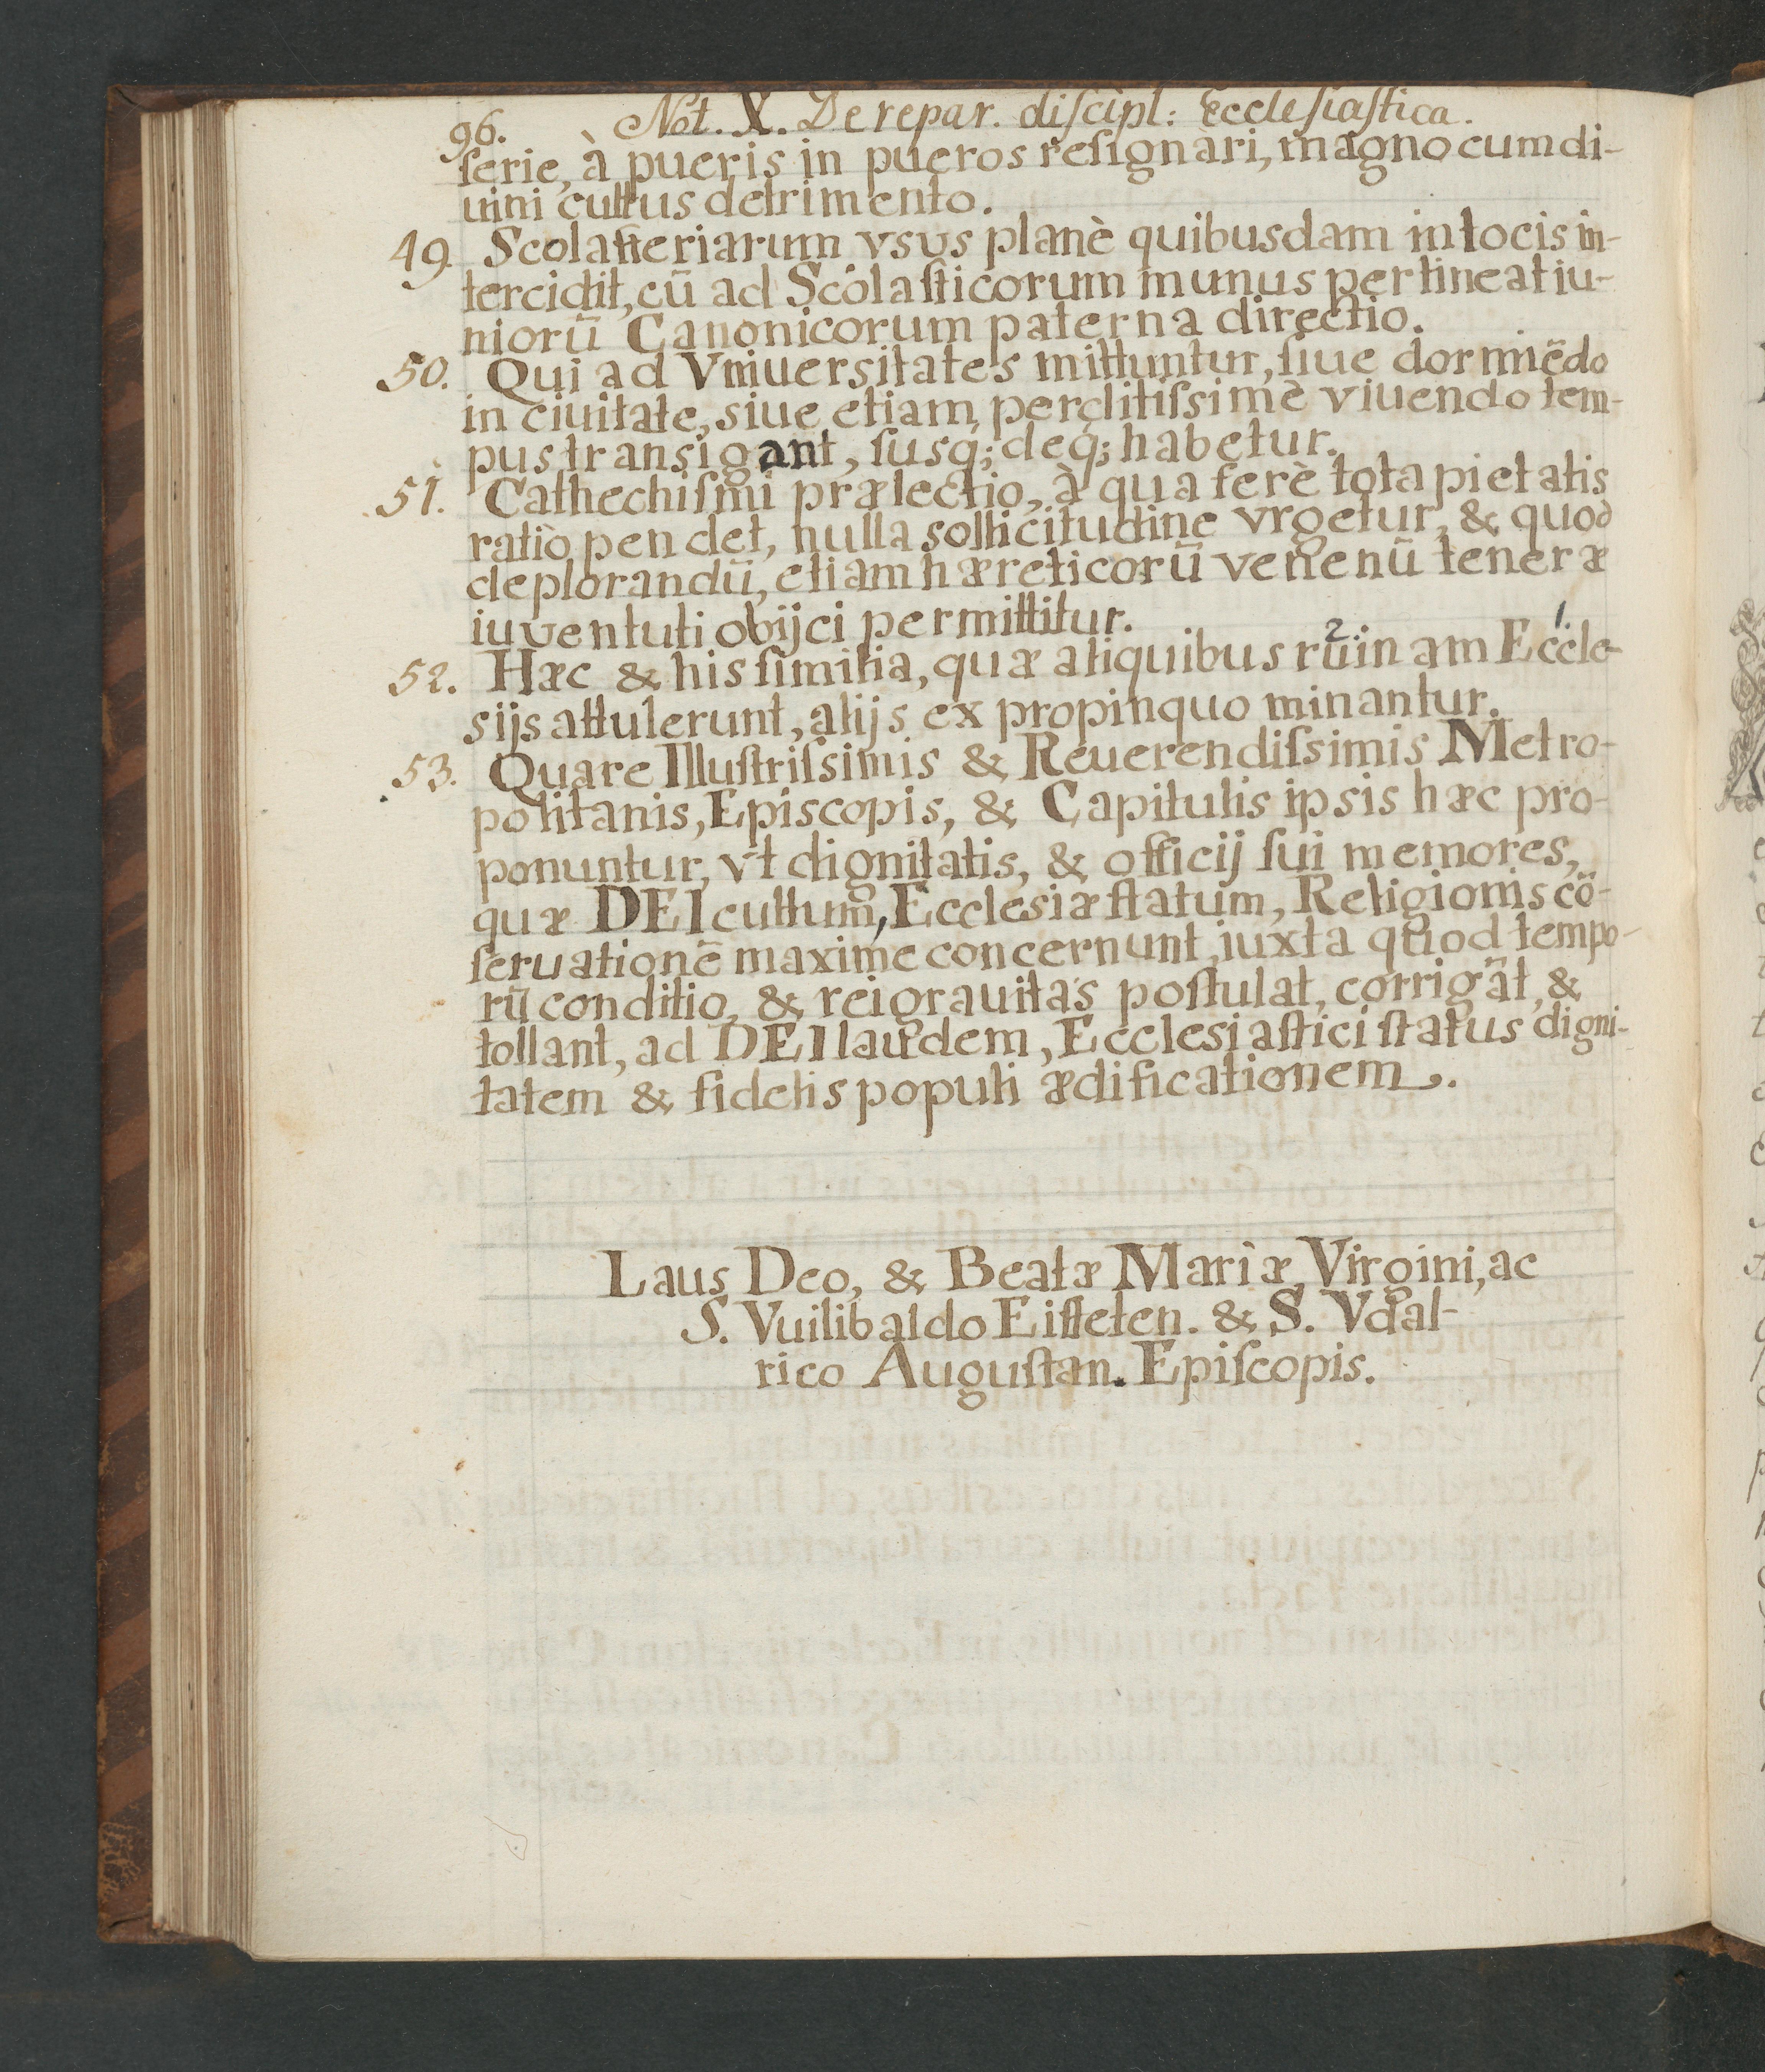 96. Not. X. De repar. discipl: Ecclesiastica.
serie, à pueris in pueros resignari, magno cum di-
uini cultus detrimento.
49. Scolasteriarum vsus planè quibusdam in locis in-
tercidit, cū ad Scolasticorum munus pertineat iu-
niorū Canonicorum paterna directio.
50. Qui ad Vniuersitates mittuntur, siue dormiēdo
in ciuitate, siue etiam perditissimè viuendo tem-
pus transigant, susq; deq; habetur.
51. Cathechismi prælectio, à qua ferè tota pietatis
ratio pendet, nulla sollicitudine vrgetur, & quod
deplorandū, etiam hæreticorū venenū teneræ
iuventuti obijci permittitur.
52. Hæc & his similia, quæ aliquibus 2. ruinam 1. Eccle-
sijs attulerunt, alijs ex propinquo minantur.
53. Quare Illustrissimis & Reuerendissimis Metro-
politanis, Episcopis, & Capitulis ipsis hæc pro-
ponuntur, vt dignitatis, & officij sui memores,
quæ DEI cultum, Ecclesiæ statum, Religionis cō-
seruationē maxime concernunt, iuxta quod tempo-
rū conditio, & rei grauitas postulat, corrigāt, &
tollant, ad DEI laudem, Ecclesiastici status digni-
tatem & fidelis populi ædificationem.
Laus Deo, & Beatæ Mariæ Virgini, ac
S. Vuilibaldo Eisteten. & S. Vdal-
rico Augustan. Episcopis.